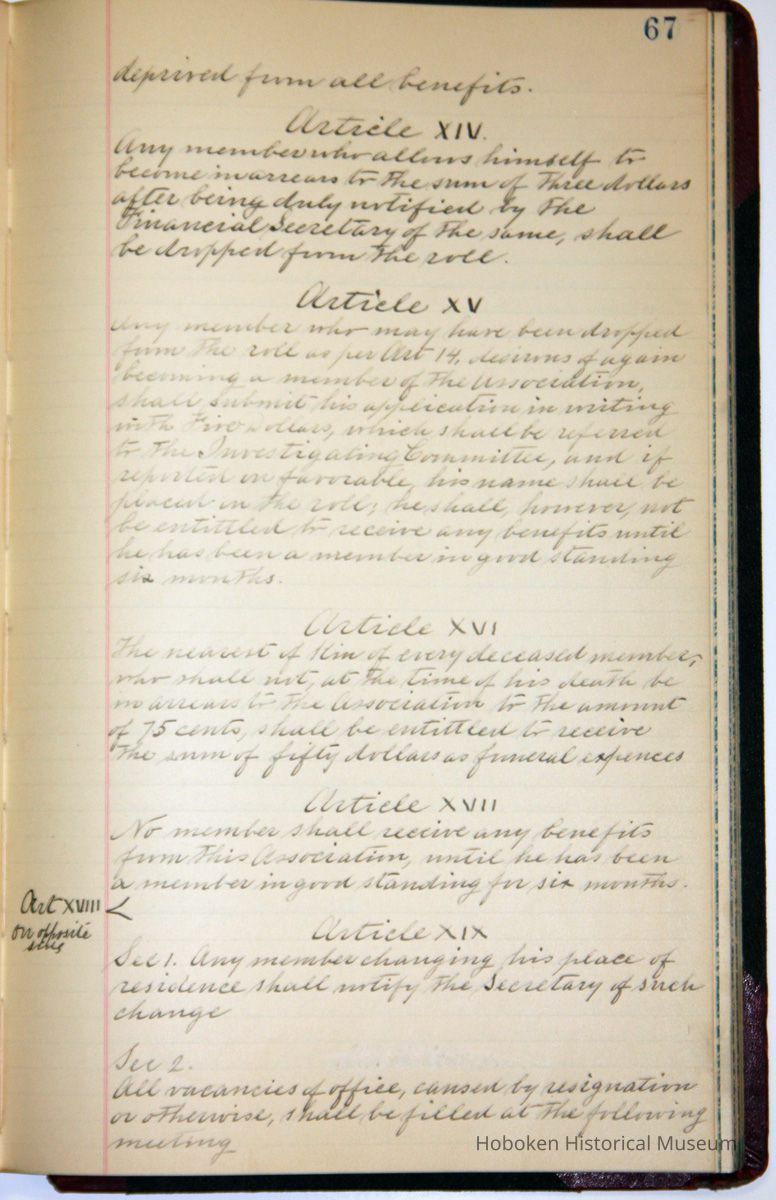 67
deprived from all benefits.
Article XIV.
Any member who allows himself to
become in arrears to the sum of Three dollars
after being duly notified by the
Financial Secretary of the same, shall
be dropped from the roll.
Article XV
Any member who may have been dropped
from the roll as per Art 14, desirous of again
becoming a member of the Association,
shall submit his application in writing
with Five Dollars, which shall be referred
to the Investigating Committee, and if
reported on favorable, his name shall be
placed on the roll; he shall, however, not
be entittled to receive any benefits until
he has been a member in good standing
six months.
Article XVI
The nearest of Kin of every deceased member,
who shall not, at the time of his death be
in arrears to the Association to the amount
of 75 cents, shall be entittled to receive
the sum of fifty dollars as funeral expences
Article XVII
No member shall receive any benefits
from this Association, until he has been
a member in good standing for six months.
Art XVIII <
on opposite
side
Article XIX
Sec 1. Any member changing his place of
residence shall notify the Secretary of such
change
Sec 2.
All vacancies of office, caused by resignation
or otherwise, shall be filled at the following
meeting
Hoboken Historical Museum